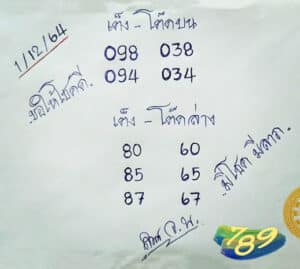 1/12/64
เต็ง - โต๊ดบน
098 038
094 034
ขอให้โชคดี
เต็ง - โต๊ดล่าง
80 60
85 65
87 67
มีโชค มีลาภ
789